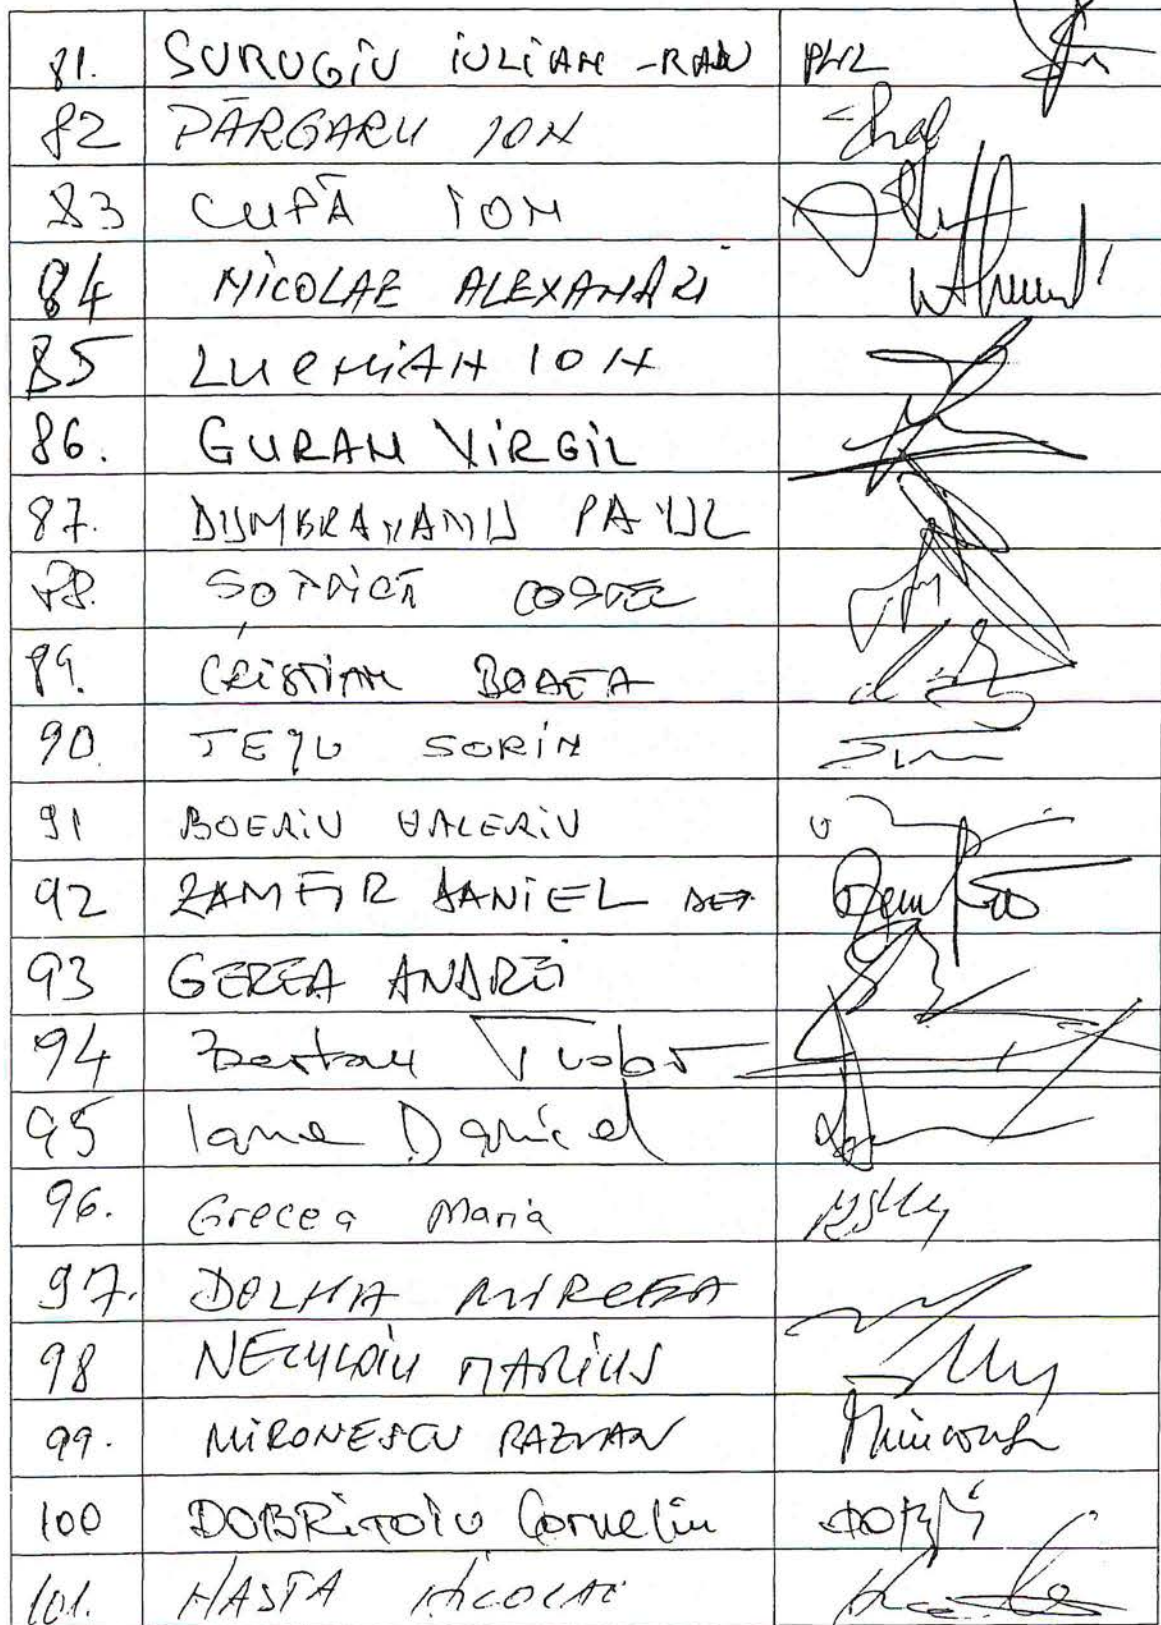 81. SURUGiU iULiAN -RADU PNL
82 PÂRGARU ION
83 CUPĂ iON
84 NiCOLAE ALEXANDRI
85 LUCHiAN ION
86. GURAN ViRGiL
87. DUMBRAVANU PAUL
88. COSTEL
89. CRiSTiAN BODEA
90. TEJU SORiN
91 BOERiU VALERiU
92 ZAMFIR DANiEL
93 GEREA ANDREi
94 Tudor
95 Iane Daniel
96. Grecea Maria
97. DOLHA MIRCEA
98 NECULOiU MARiUS
99. MiRONESCU RAZVAN
100 DOBRiTOiU Corneliu
101. NiCOLAE